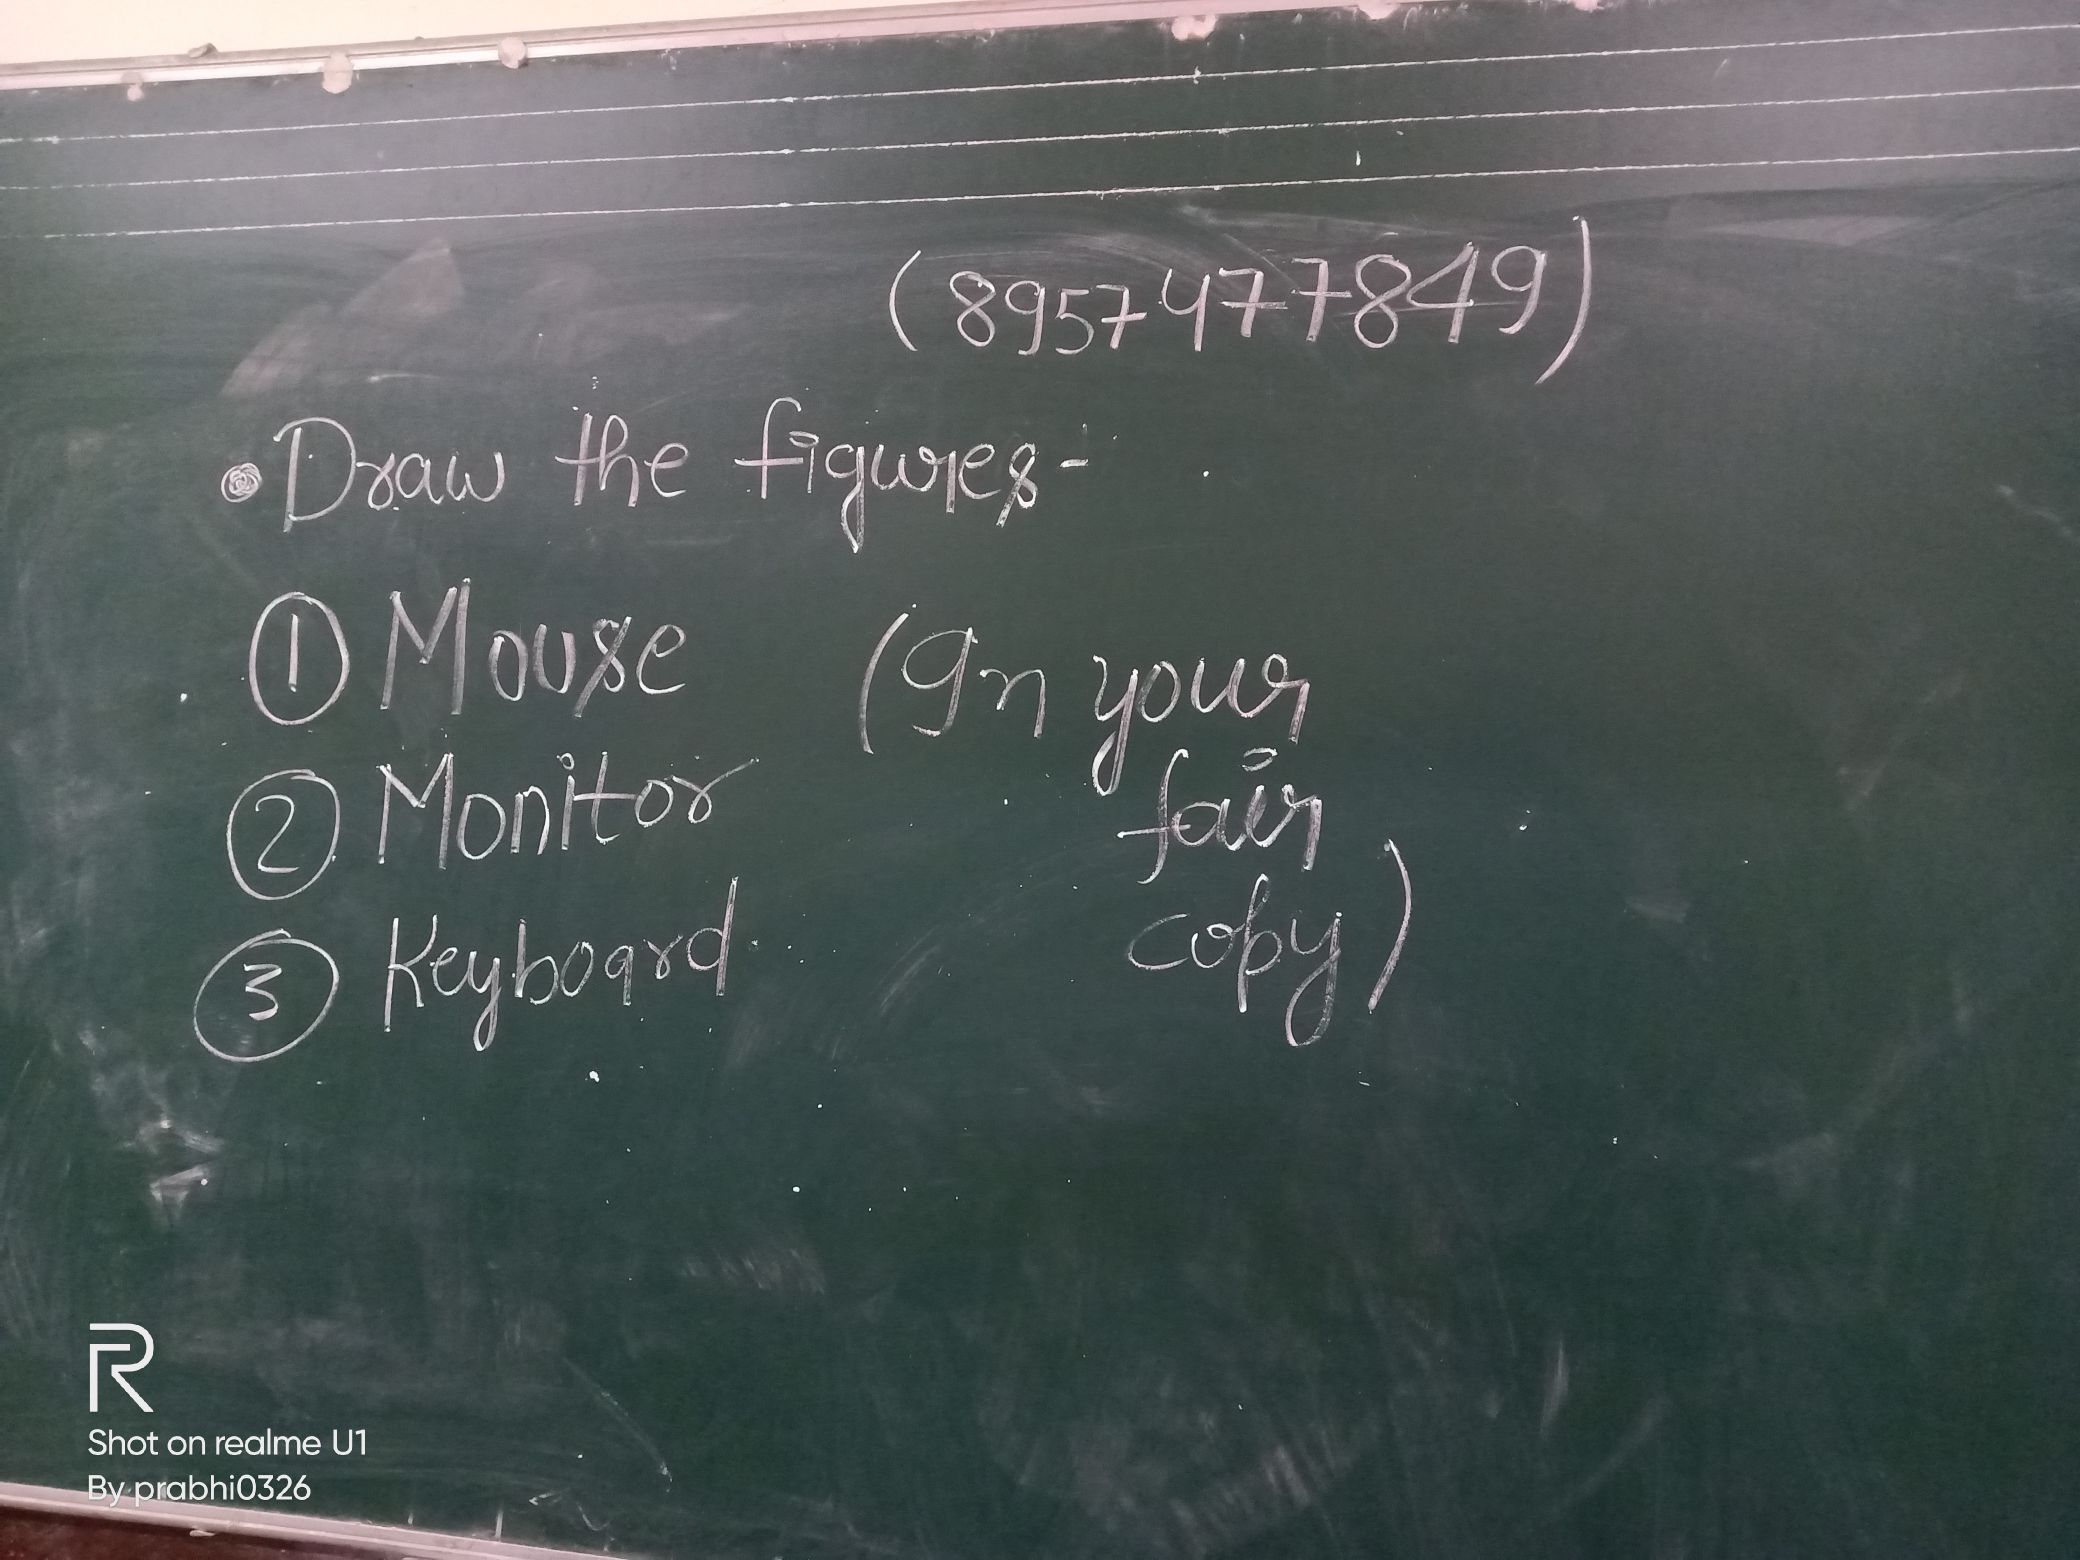 (8957477849)
• Draw the figures-
① Mouse (In your
② Monitor fair
③ Keyboard copy)
R
Shot on realme U1
By prabhi0326